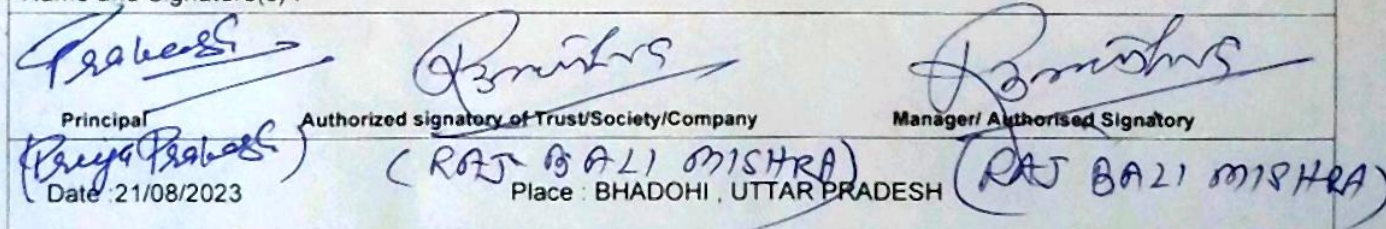 Name and Signature(s) :
Prakash
Principal Authorized signatory of Trust/Society/Company Manager/ Authorised Signatory
(Priya Prakash) (RAJ BALI MISHRA) (RAJ BALI MISHRA)
Date :21/08/2023 Place : BHADOHI , UTTAR PRADESH